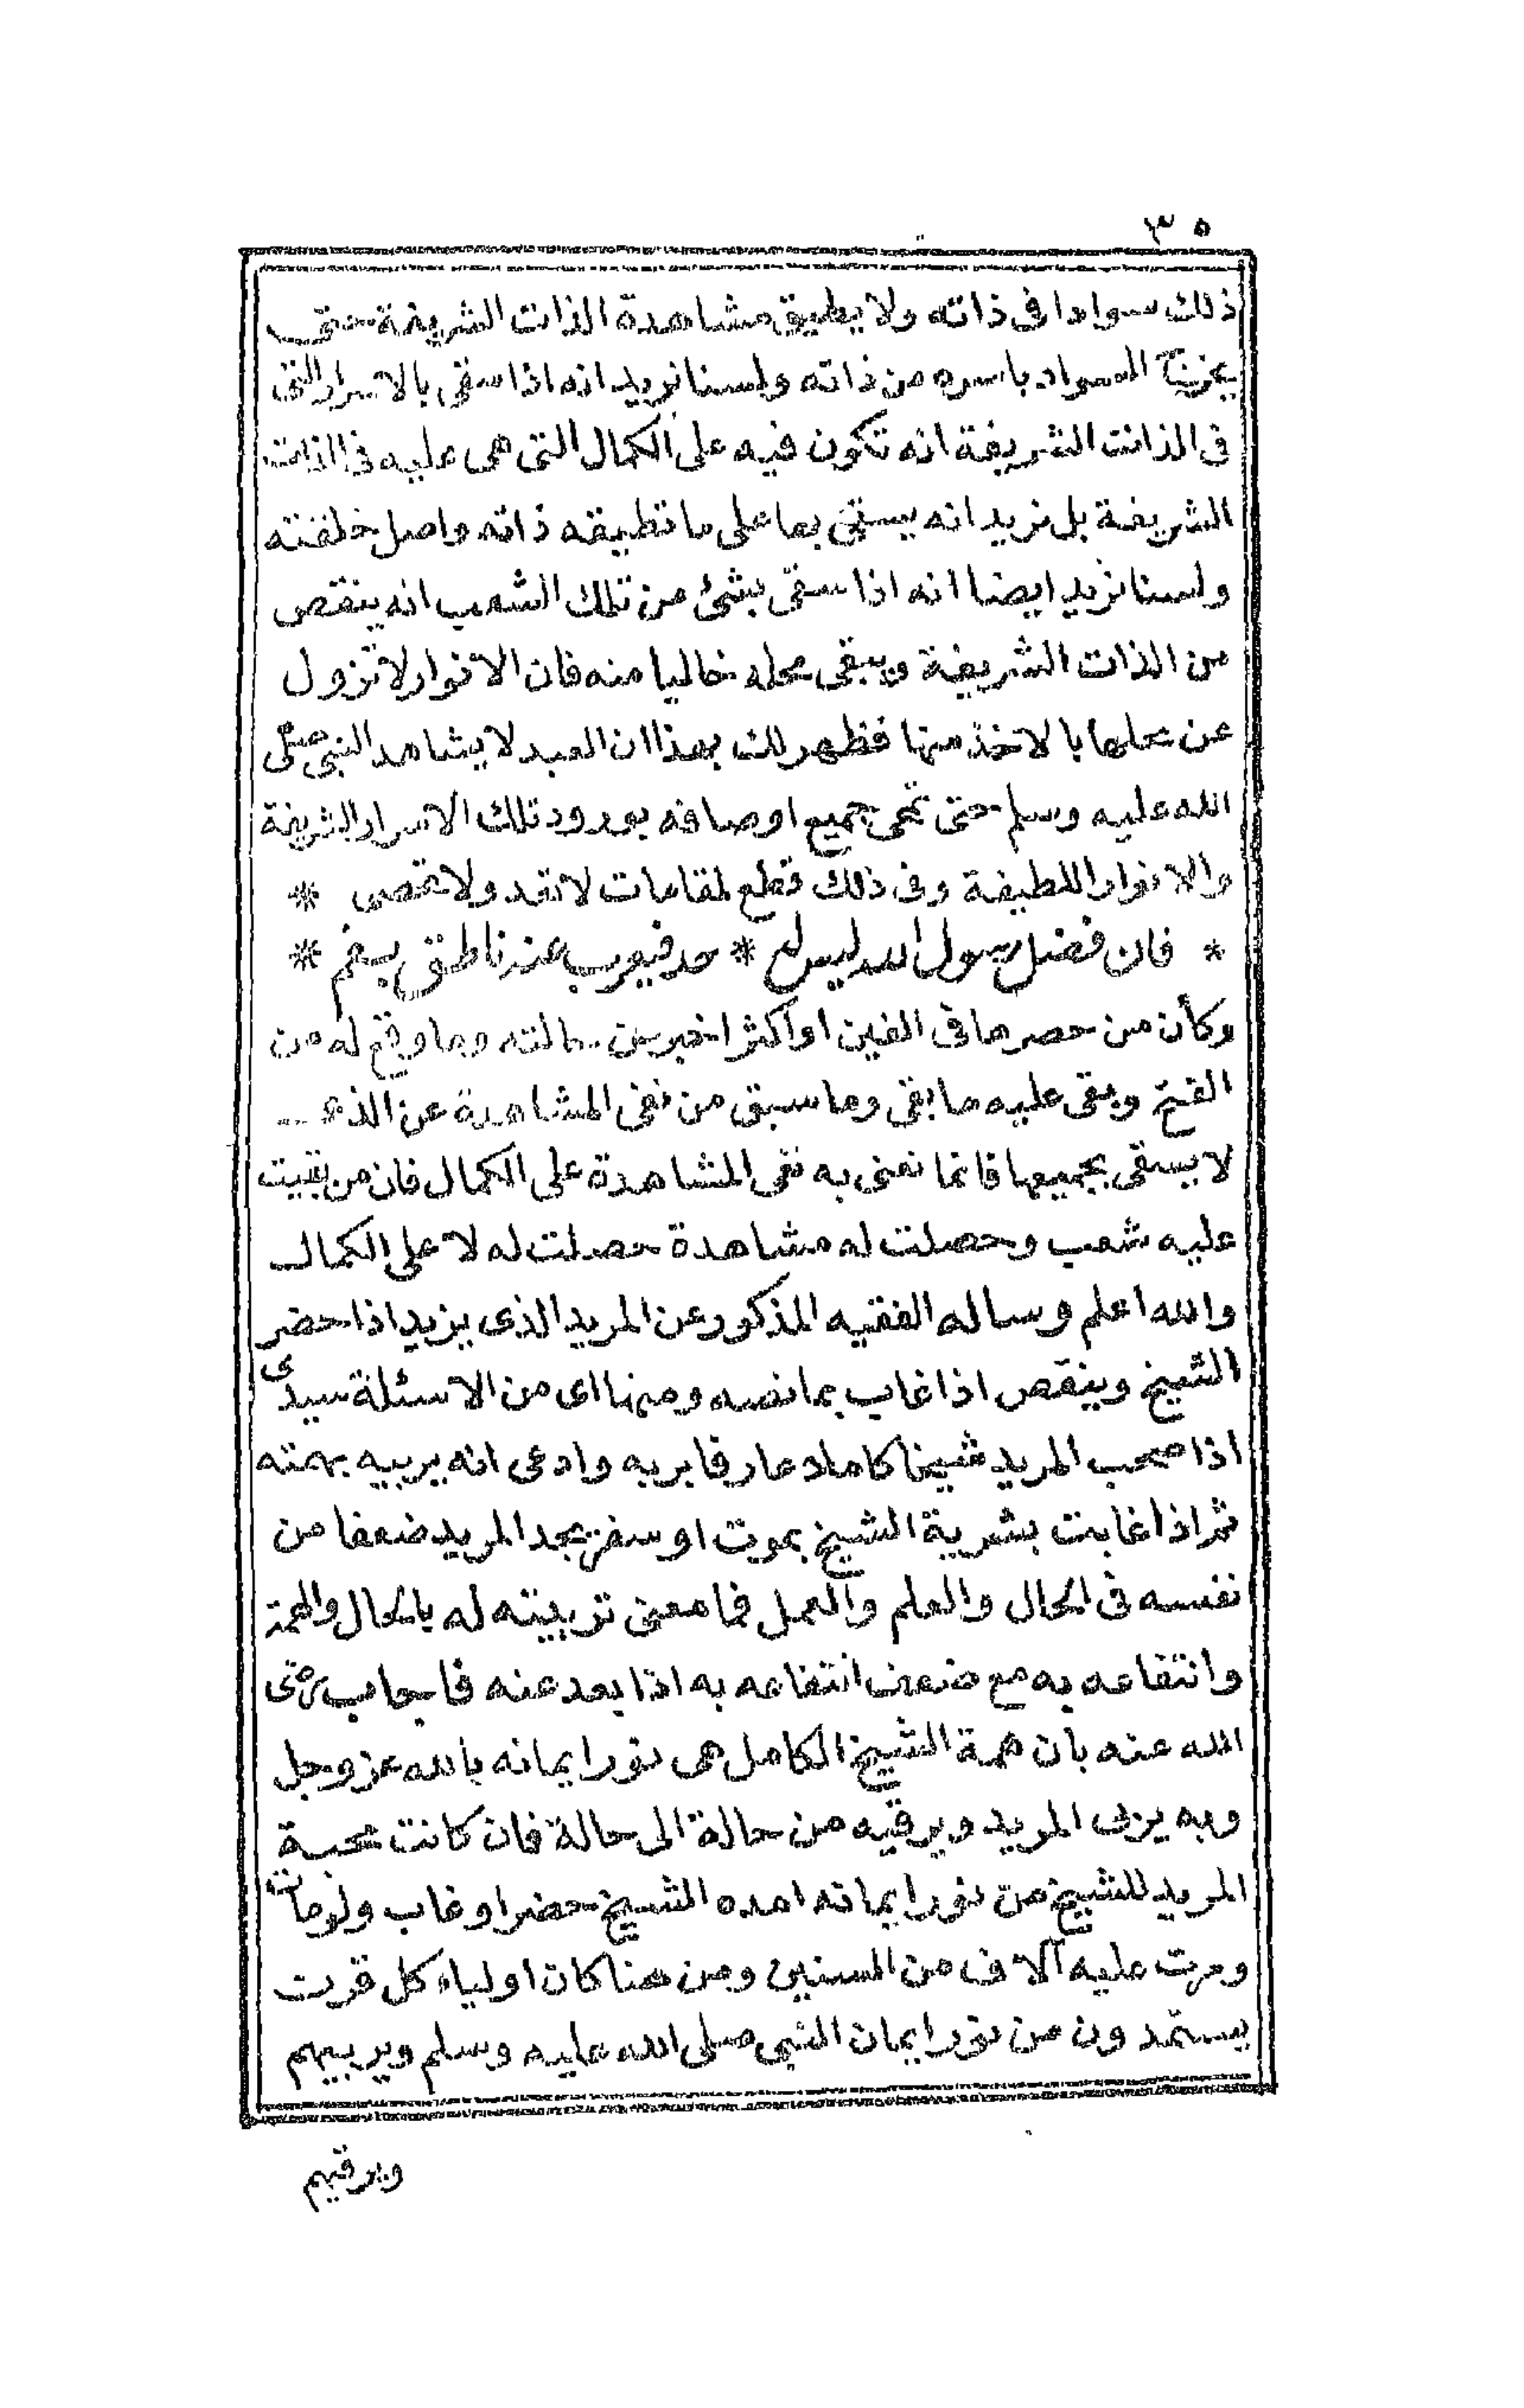 ٣٥
ذلك سوادا فى ذاته ولا يطيق مشاهدة الذات الشريفة حتى
يخرج السواد باسره من ذاته ولسنا نريد انه اذا سقى بالاسرار التى
فى الذات الشريفة انه تكون فيه على الكمال التى هى عليه فى الذات
الشريفة بل نريد انه يسقى بها على ما تطيقه ذاته واصل خلقته
ولسنا نريد ايضا انه اذا سقى بشئ من تلك الشعب انه ينقص
من الذات الشريفة ويبقى محله خاليا منه فان الانوار لا تزول
عن محلها بالاخذ منها فظهر لك بهذا ان العبد لا يشاهد النبى صلى
الله عليه وسلم حتى تمحى جميع اوصافه بورود تلك الاسرار الشريفة
والانوار اللطيفة وفى ذلك قطع لمقامات لا تعد ولا تحصى *
* فان فضل رسول الله ليس له * حد فيعرب عنه ناطق بفم *
وكأن من حصرها فى الفين او اكثر اخبر عن حالته وما وقع له من
الفتح وبقى عليه ما بقى وما سبق من نفى المشاهدة عن الذى
لا يسقى بجميعها فانما نعنى به نفى المشاهدة على الكمال فان من بقيت
عليه شعب وحصلت له مشاهدة حصلت له لا على الكمال
والله اعلم وساله الفقيه المذكور عن المريد الذى يزيد اذا حضر
الشيخ وينقص اذا غاب بما نصه ومنها اى من الاسئلة سيدى
اذا صحب المريد شيخا كاملا عارفا بربه وادعى انه يربيه بهمته
ثم اذا غابت بشرية الشيخ بموت او سفر يجد المريد ضعفا من
نفسه فى الحال والعلم والعمل فما معنى تربيته له بالحال والهمة
وانتفاعه به مع ضعف انتفاعه به اذا بعد عنه فاجاب رضى
الله عنه بان همة الشيخ الكامل هى نور ايمانه بالله عز وجل
وبه يربى المريد ويرقيه من حالة الى حالة فان كانت محبة
المريد للشيخ من نور ايمانه امده الشيخ حضر او غاب ولو مات
ومرت عليه آلاف من السنين ومن هنا كان اولياء كل قرن
يستمدون من نور ايمان النبى صلى الله عليه وسلم ويربيهم
ويرقيهم